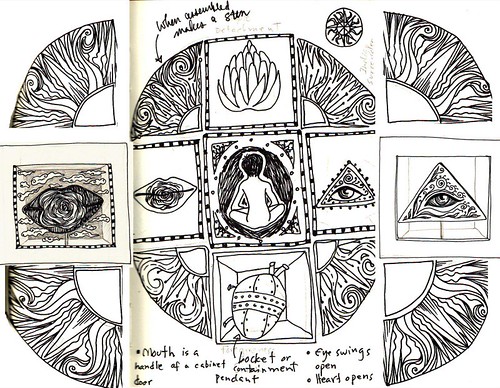 when assembled
makes a sten
Detachment
• Mouth is a
handle of a cabinet
door
Locket or
containment
pendant
• Eye swings
open
• Heart opens